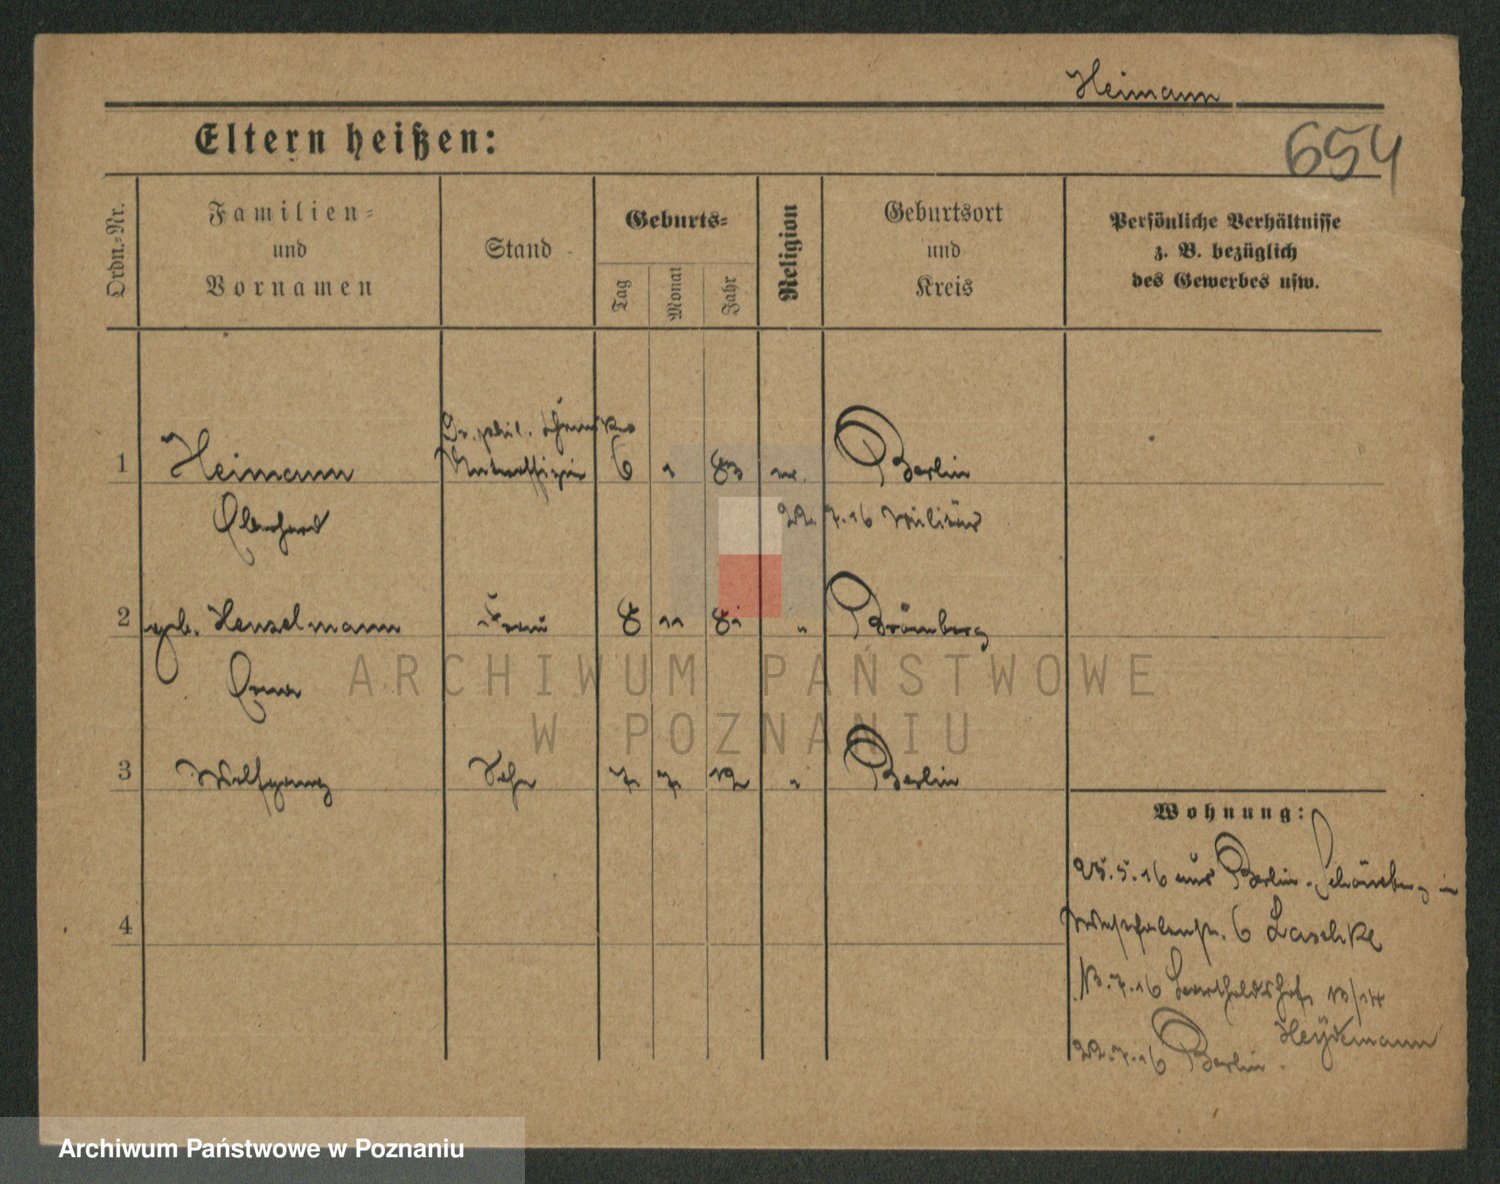 Heimann
654
Eltern heißen:
Ordn.-Nr.
Familien-
und
Vornamen
Stand
Geburts-
Tag
Monat
Jahr
Religion
Geburtsort
und
Kreis
Persönliche Verhältnisse
z. B. bezüglich
des Gewerbes usw.
Dr. phil. Chemiker
1 Heimann Unteroffizier 6 1 83 Berlin
Eberhard 22.7.16 Militär
2 geb. Henselmann Frau 8 11 81 " Bromberg
Anna
3 Wolfgang Sohn 7 7 12 " Berlin
4
Wohnung:
25.5.16 aus Berlin-Schöneberg in
6 Laschke
13.7.16 Bartholdshof 13/14
Heydemann
22.7.16 Berlin.
ARCHIWUM PAŃSTWOWE
W POZNANIU
Archiwum Państwowe w Poznaniu